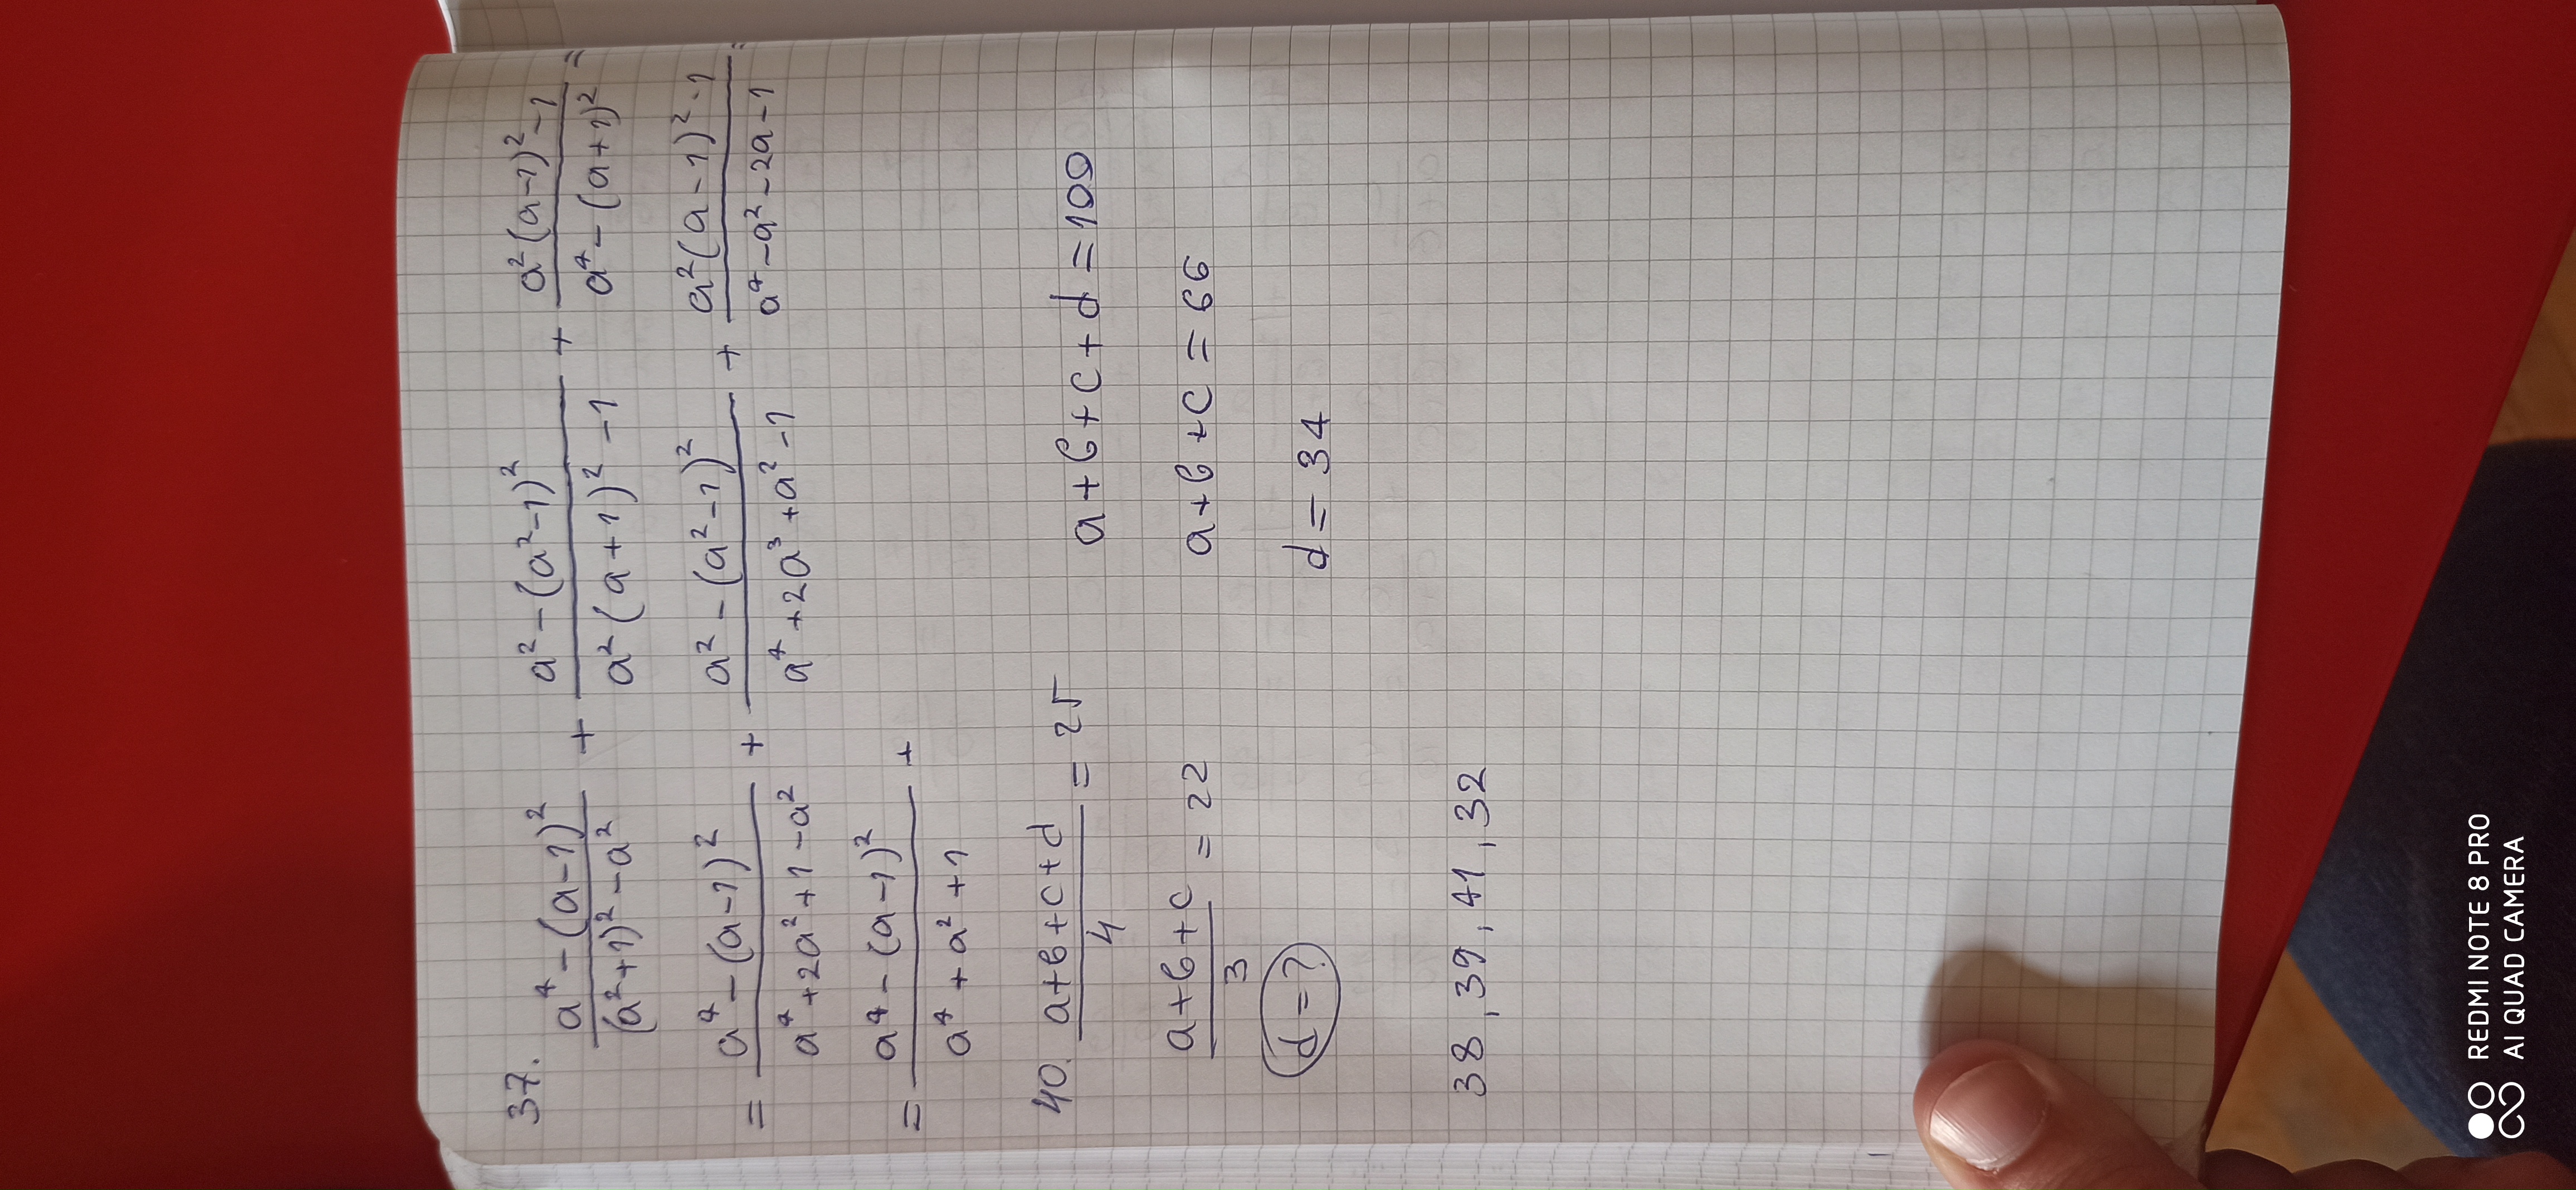 37.
a⁴-(a-1)² / (a²+1)²-a² + a²-(a²-1)² / a²(a+1)²-1 + a²(a-1)²-1 / a⁴-(a+1)² =
= a⁴-(a-1)² / a⁴+2a²+1-a² + a²-(a²-1)² / a⁴+2a³+a²-1 + a²(a-1)²-1 / a⁴-a²-2a-1 =
= a⁴-(a-1)² / a⁴+a²+1 +
40. a+b+c+d / 4 = 25 a+b+c+d=100
a+b+c / 3 = 22 a+b+c=66
d=? d=34
38, 39, 41, 32
REDMI NOTE 8 PRO
AI QUAD CAMERA